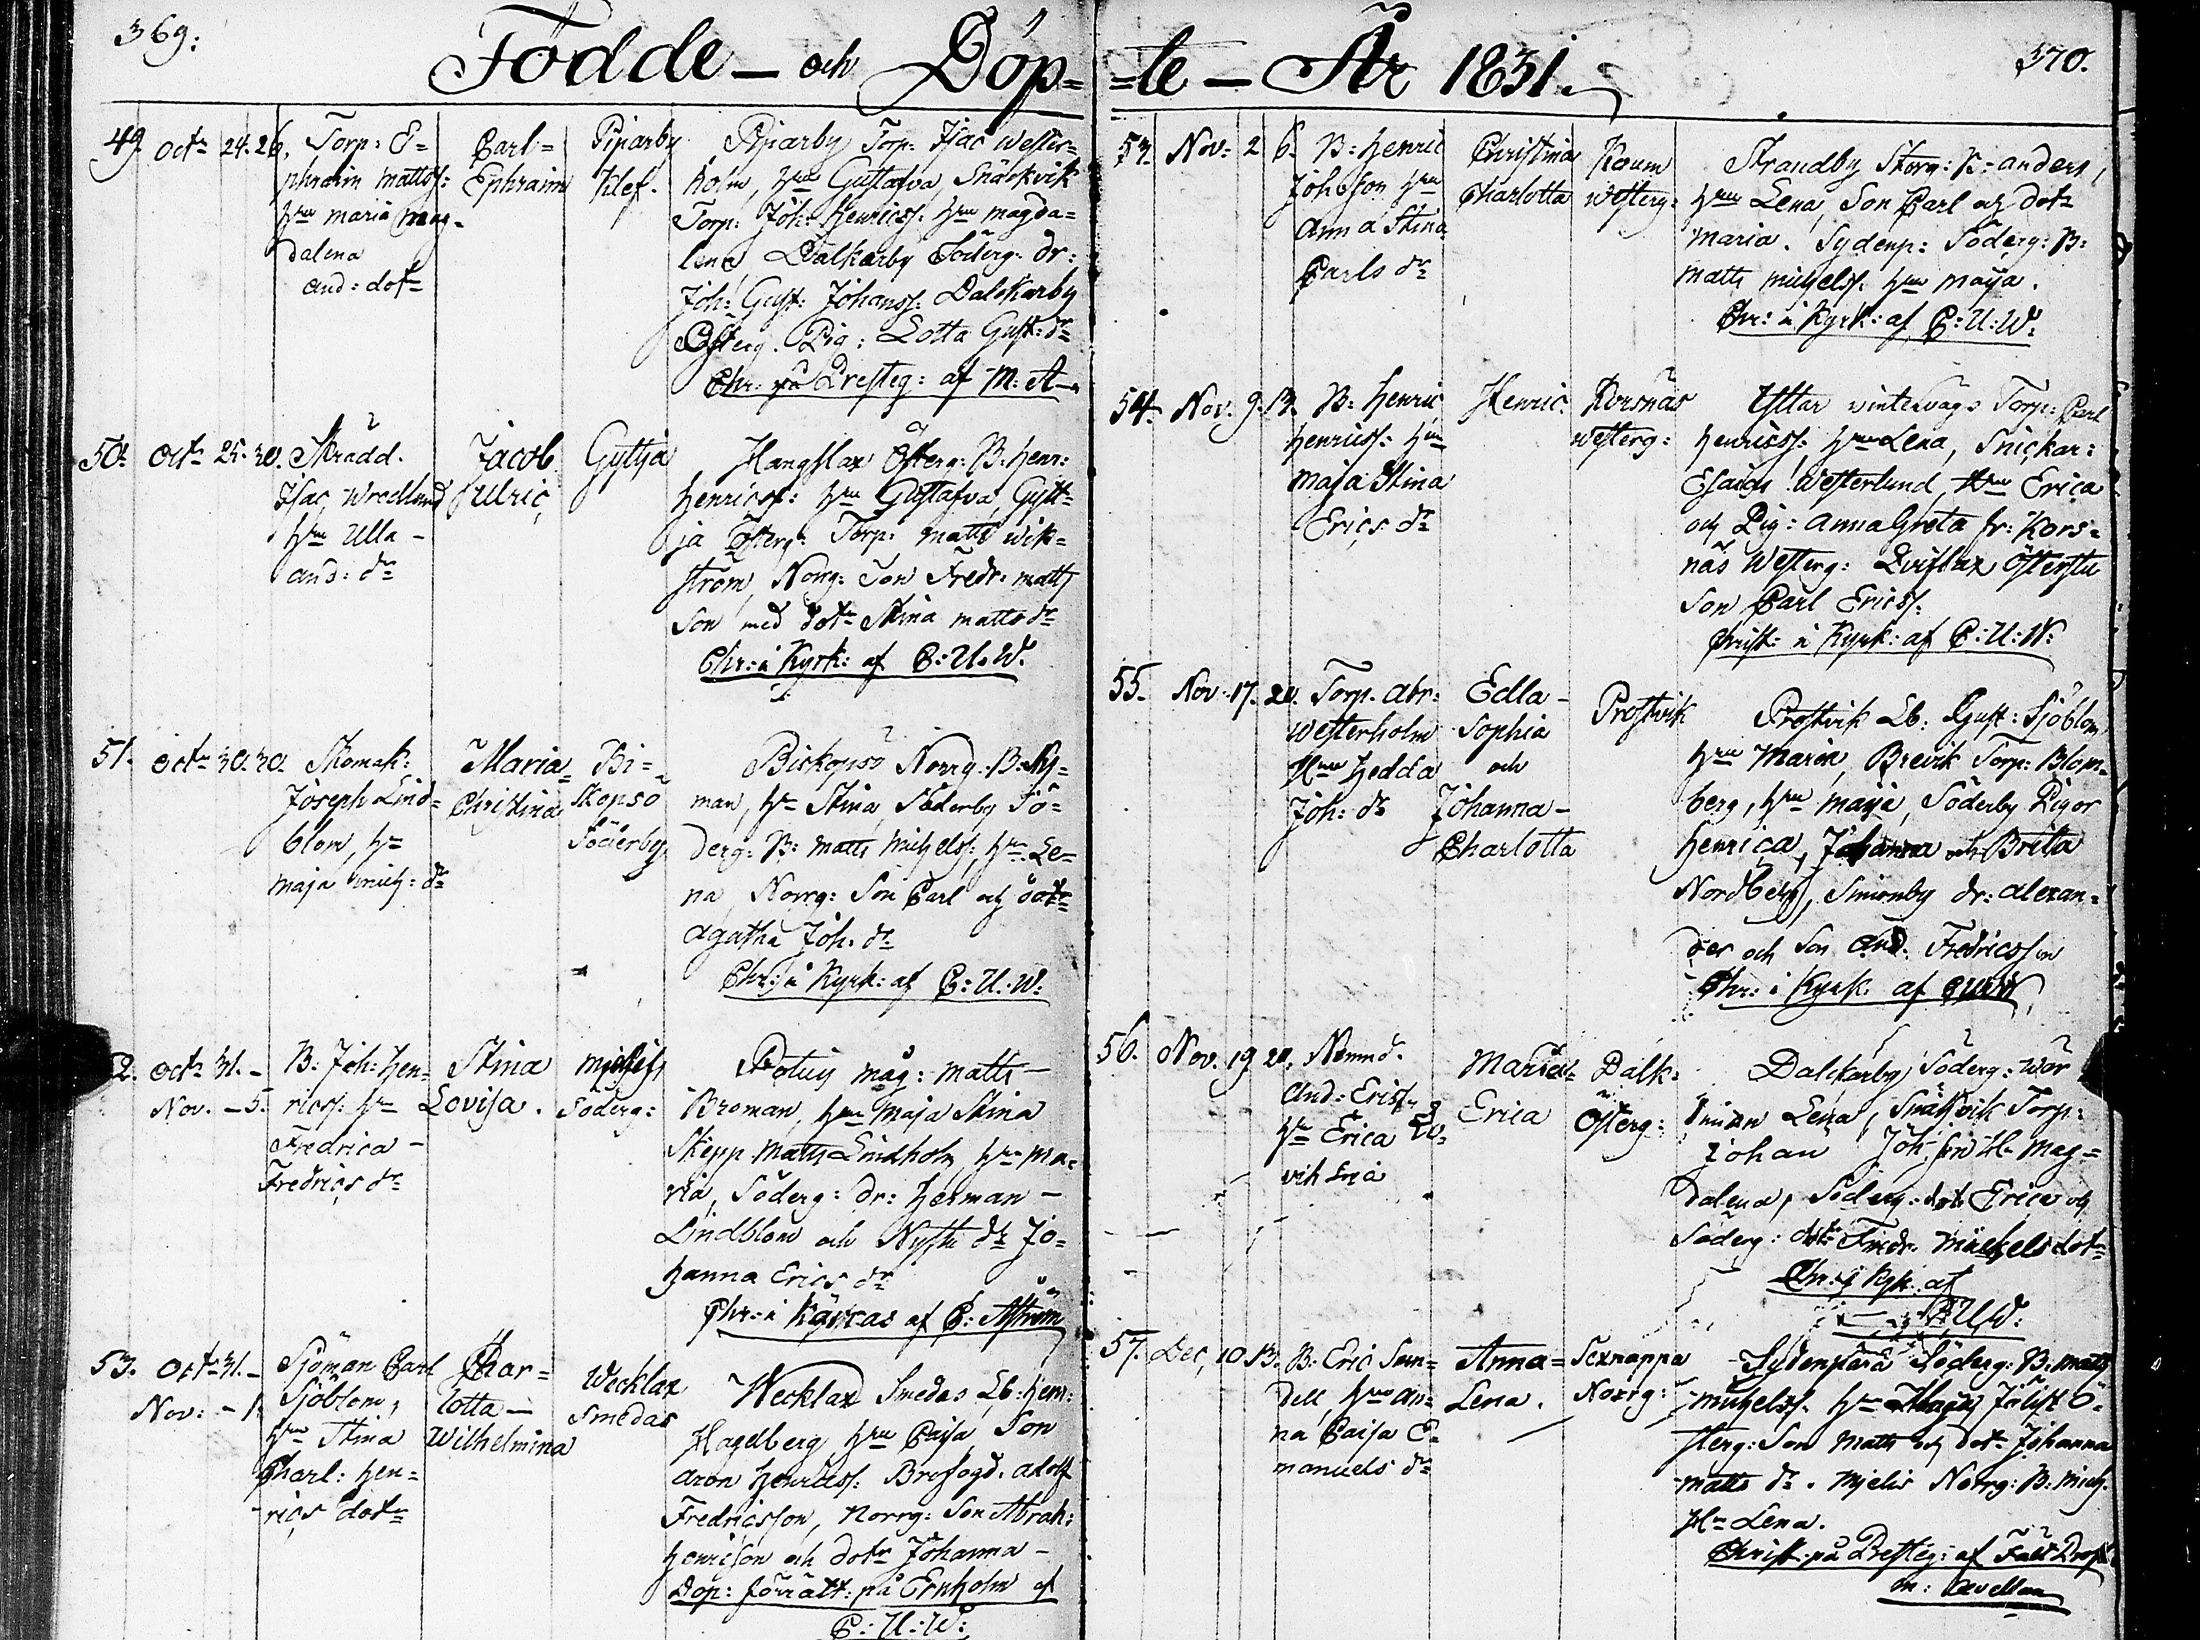 369:
Födde - och Döp=
49. Octr 24. 26. Torp: E=
phraim Mattss:
hru Maria Mag-
dalena
And: dotr
Carl=
Ephraim
Piparby
Klef.
Piparby Torp: Isac Wester=
holm, hru Gustafva, Snäckvik
Torp: Joh: Henricss: hru Magda=
lena, Dalkarby Söderg: dr:
Joh: Gust: Johanss: Dalckarby
Österg. Pig: Lotta Gust: dr
Chr: på Presteg: af M: A-
50. Octr 25. 30. Skrädd.
Isac Wredlund
hru Ulla -
And: dr
Jacob
Ulric
Gyttja
Hangslax Österg: B: Henr:
Henricss: hru Gustafva, Gytt=
ja Österg: Torp: Matts Wik=
ström, Norrg: Son Fredr: Matts
son med dotr Stina Matts dr
Chr: i Kyrk: af C: U. W.
51. Octr 30. 30. Skomak:
Joseph Lind=
blom, hr
Maja Mich: dr
Maria=
Christina
Bi=
skopsö
Söderby
Biskopsö Norrg. B. Ny=
man, hr Stina, Söderby Sö=
derg: B: Matts Michelss: hr: Le=
na, Norrg: Son Carl och dotr
Agatha Joh: dr
Chr: i Kyrk: af C: U. W:
2. Octr 31. -
Nov. - 5.
B: Joh: Hen=
ricss: hr
Fredrica -
Fredrics dr
Stina
Lovisa.
Söderg:
Måg: Matts -
Broman, hru Maja Stina
Skepp Matts Lindholm, hru Ma=
ria, Söderg: dr: Herman -
Lindblom och dr Jo=
hanna Erics dr
Chr: i af C: Åström
53. Octr 31. -
Nov: - 1.
Sjöman Carl
Sjöblom,
hru Stina
Charl: Hen=
rics dotr
Char=
lotta -
Wilhelmina
Wecklax
Smedas
Wecklax Smedas Lb: Henr:
Hagelberg hru Caisa Son
Aron Henricss: Brofogd. Adolf
Fredricsson, Norrg: Son Abrah:
Henricson och dotr Johanna -
Dop: förrätt: på Ernholm af
C: U: W:
=te - År 1831.
370.
53. Nov: 2 6. B: Henric
Johsson hru
Anna Stina
Carls dr
Christina
Charlotta
Kaum
Westerg:
Strandby Storg: B: Anders,
hru Lena, Son Carl och dotr
Maria. Sydenp: Söderg: B:
Matts Michelss: hru Maija.
Chr: i Kyrk: af C: U: W:
54. Nov. 9. 13. B: Henric
Henricss: hru
Maja Stina
Erics dr
Henric.
Korsnäs
Westerg:
Yttar vintervägs Torp: Carl
Henricss: hru Lena, Snickar:
Esaias Westerlund hru Erica
och Pig: Anna Greta fr: Kors=
näs Westerg: Qviflax
Son Carl Ericss:
Christ: i Kyrk: af C: U: W:
55. Nov. 17. 20. Torp. Abr:
Westerholm
Hru Hedda
Joh: dr
Edla -
Sophia
och
Johanna -
Charlotta
Prostvik
Prostvik Lb: Gust: Sjöblom,
hru Maria, Brevik Torp: Blom=
berg, hru Maija, Söderby Pigor
Henrica, Johanna och Brita
Nordberg, Simonby dr: Alexan=
der och Son And. Fredricsson
Chr: i Kyrk: af CUW
56. Nov. 19 20. Nämnd.
And: Ericss
hr Erica
Maria=
Erica
Dalk:
Österg:
Dalckarby Söderg:
Lena, Snäckvik Torp:
Johan Joh:son H: Mag=
dalena, Söderg: dotr Erica och
Söderg: dotr Fredr. Mickels dotr
Chr: i Kyk. af
C: U: W:
57. Dec, 10 13. B: Eric Sun=
dell, hru An=
na Caisa E=
manuels dr
Anna=
Lena.
Sexnappa
Norrg:
Sydenperä Söderg: B: Matts
Michelss. hr Maja Jälist Ö=
sterg: Son Matts och dotr Johanna
Matts dr. Mielis Norrg: B: Mich.
Hr Lena.
Christ: på Presteg: af Fält Prost
M: Avellan